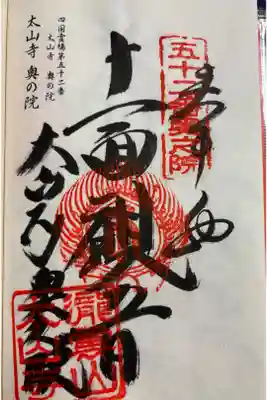 奉拝
五十二番奥之院
十一面観音
太山寺奥之院
四国霊場第五十二番
太山寺 奥の院
太山寺 奥の院